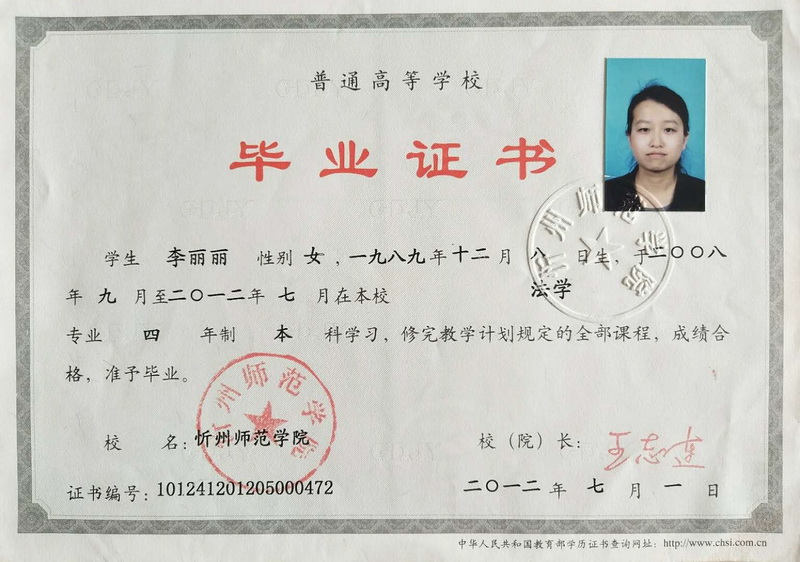 普通高等学校
毕业证书
学生 李丽丽 性别 女，一九八九年十二月 八 日生，于二〇〇八
年 九 月至二〇一二年 七 月在本校 法学
专业 四 年制 本 科学习，修完教学计划规定的全部课程，成绩合
格，准予毕业。
忻州师范学院
忻州师范学院
校 名：忻州师范学院 校（院）长：
证书编号：101241201205000472 二〇一二年 七 月 一 日
中华人民共和国教育部学历证书查询网址：http://www.chsi.com.cn